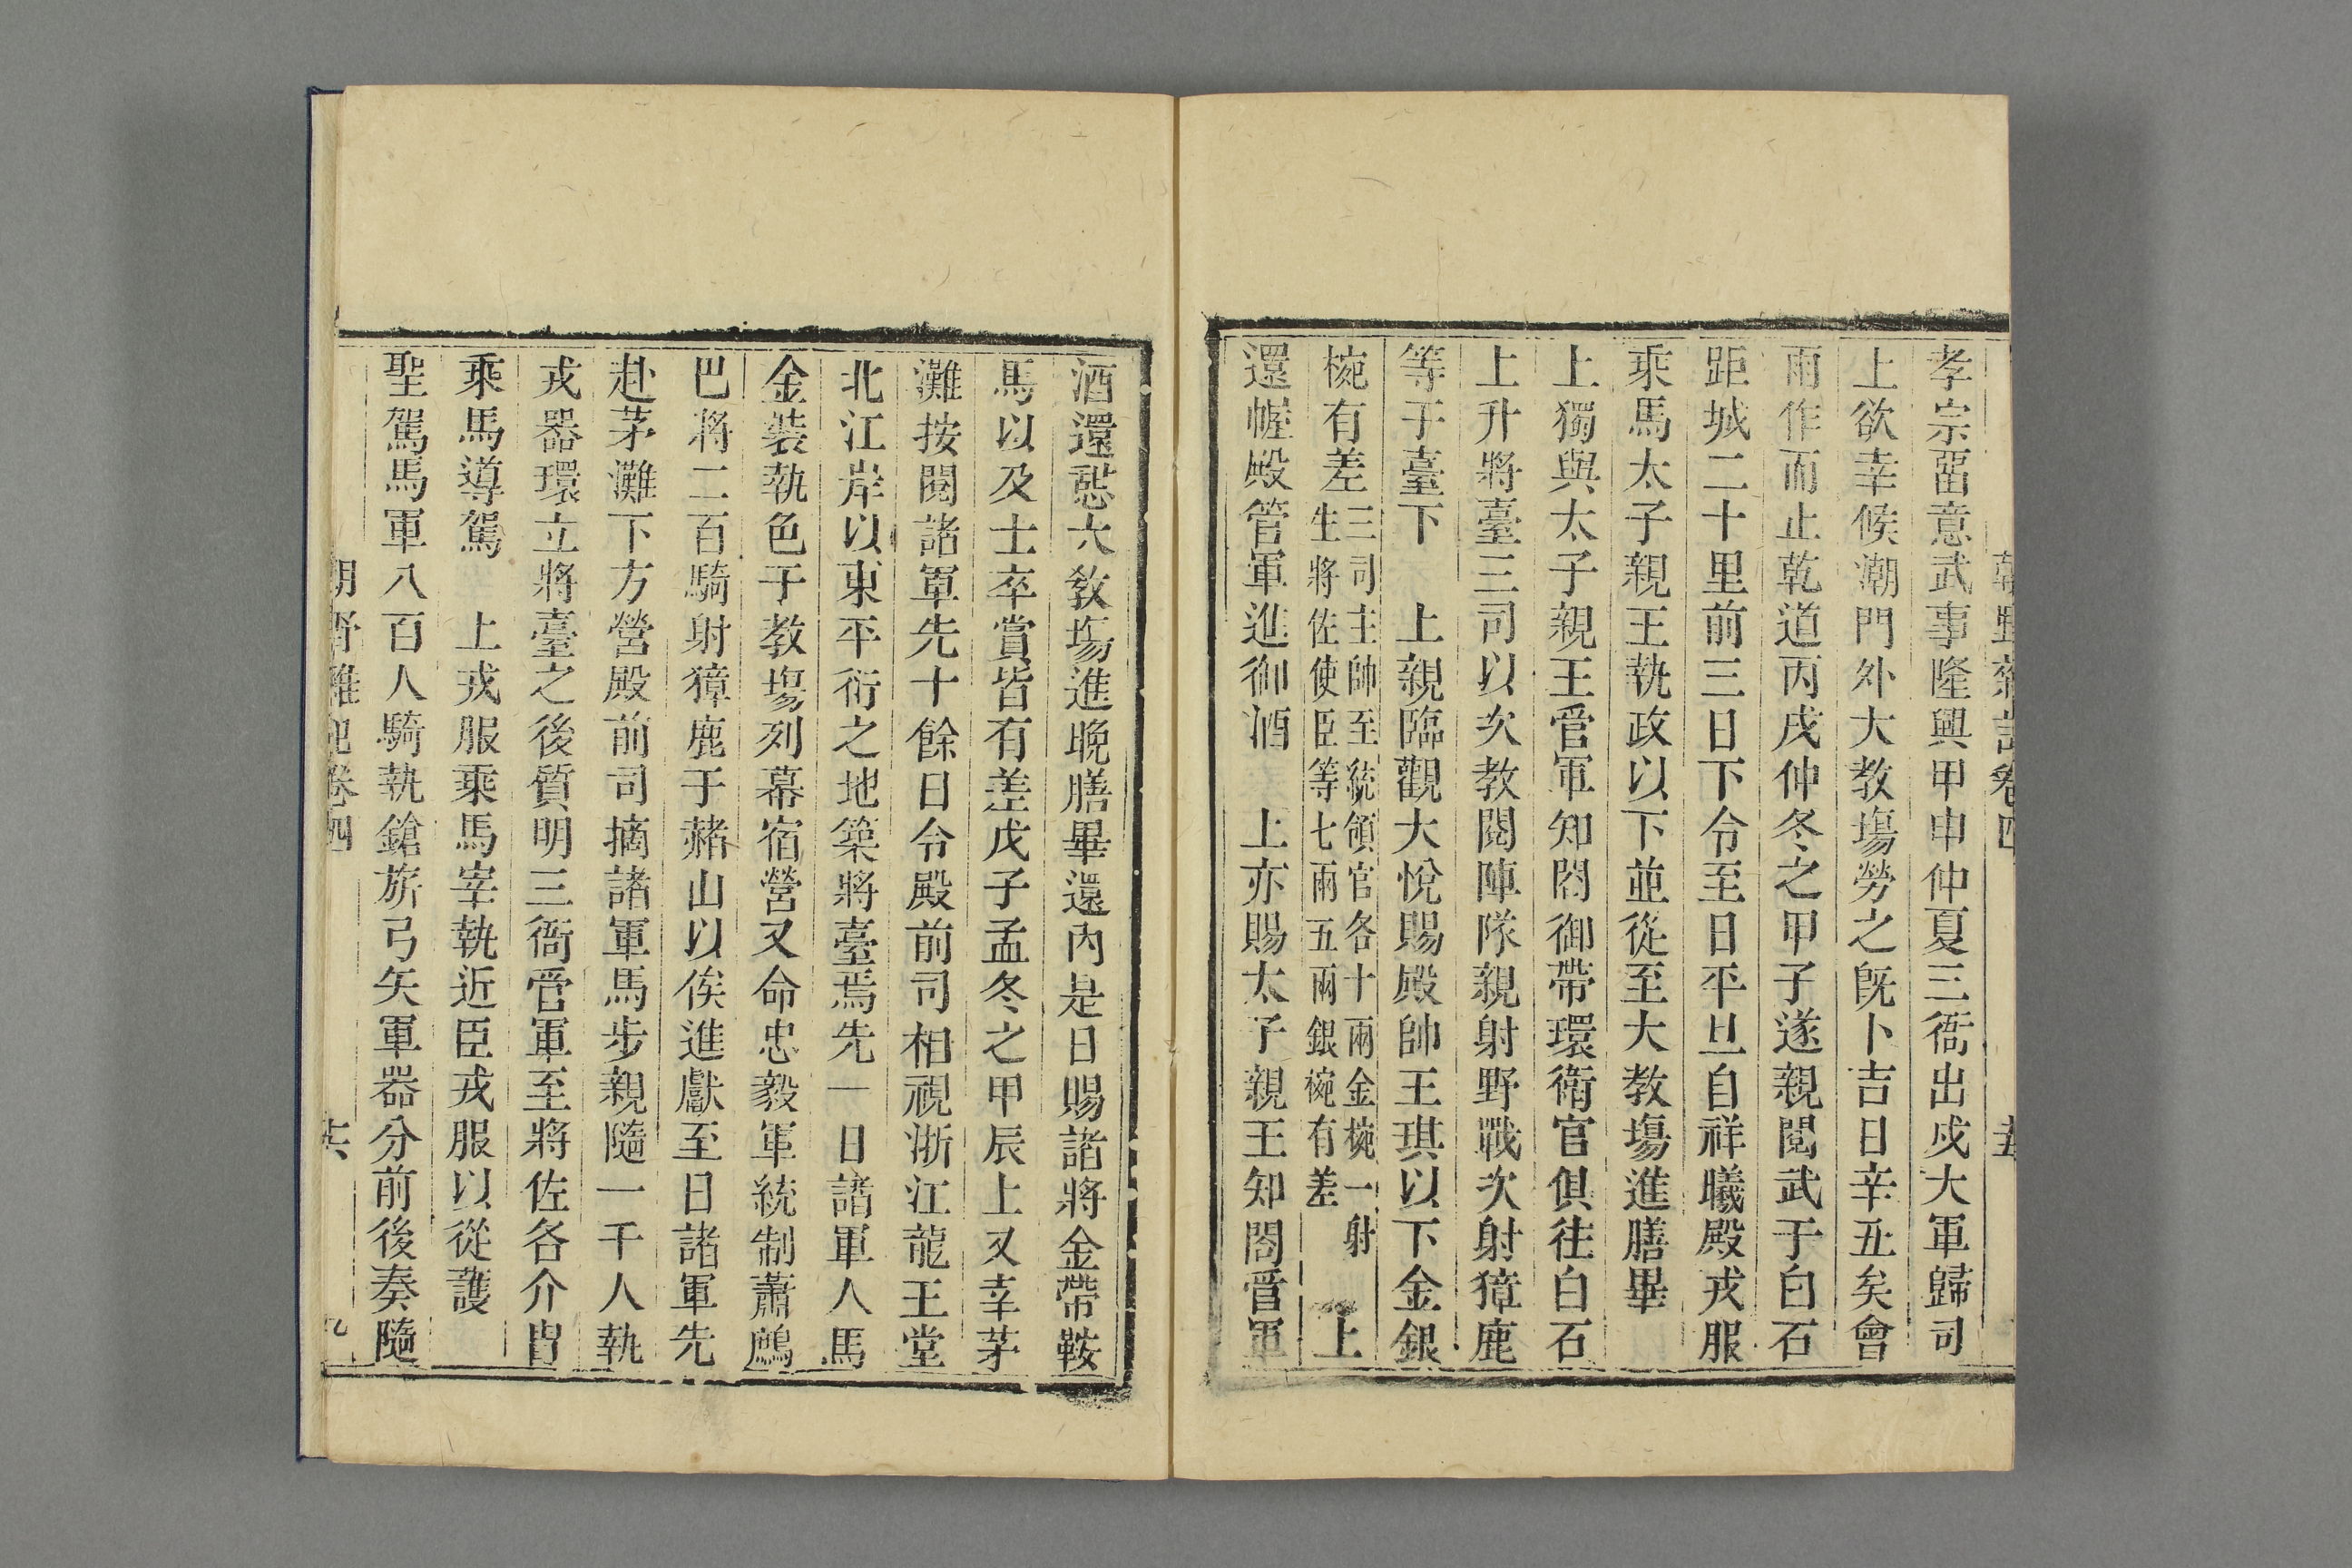 孝宗畱意武事隆興甲申仲夏三衙出戍大軍歸司
上欲幸候潮門外大教場勞之既卜吉日辛丑矣會
雨作而止乾道丙戌仲冬之甲子遂親閱武于白石
距城二十里前三日下令至日平旦自祥曦殿戎服
乘馬太子親王執政以下並從至大教場進膳畢
上獨與太子親王管軍知閤御帶環衛官俱往白石
上升將臺三司以次教閱陣隊親射野戰次射獐鹿
等于臺下　上親臨觀大悅賜殿帥王琪以下金銀
椀有差三司主帥至統領官各十兩金椀一射生將佐使臣等七兩五兩銀椀有差　上
還幄殿管軍進御酒　上亦賜太子親王知閤管軍
酒還憇大敎場進晚膳畢還內是日賜諸將金帶鞍
馬以及士卒賞皆有差戊子孟冬之甲辰上又幸茅
灘按閱諸軍先十餘日令殿前司相視浙江龍王堂
北江岸以東平衍之地築將臺焉先一日諸軍人馬
金裝執色于教場列幕宿營又命忠毅軍統制蕭鷓
巴將二百騎射獐鹿于赭山以俟進獻至日諸軍先
赴茅灘下方營殿前司摘諸軍馬步親隨一千人執
戎器環立將臺之後質明三衙管軍至將佐各介胄
乘馬導駕　上戎服乘馬宰執近臣戎服以從護
聖駕馬軍八百人騎執鎗旂弓矢軍器分前後奏隨
卷四